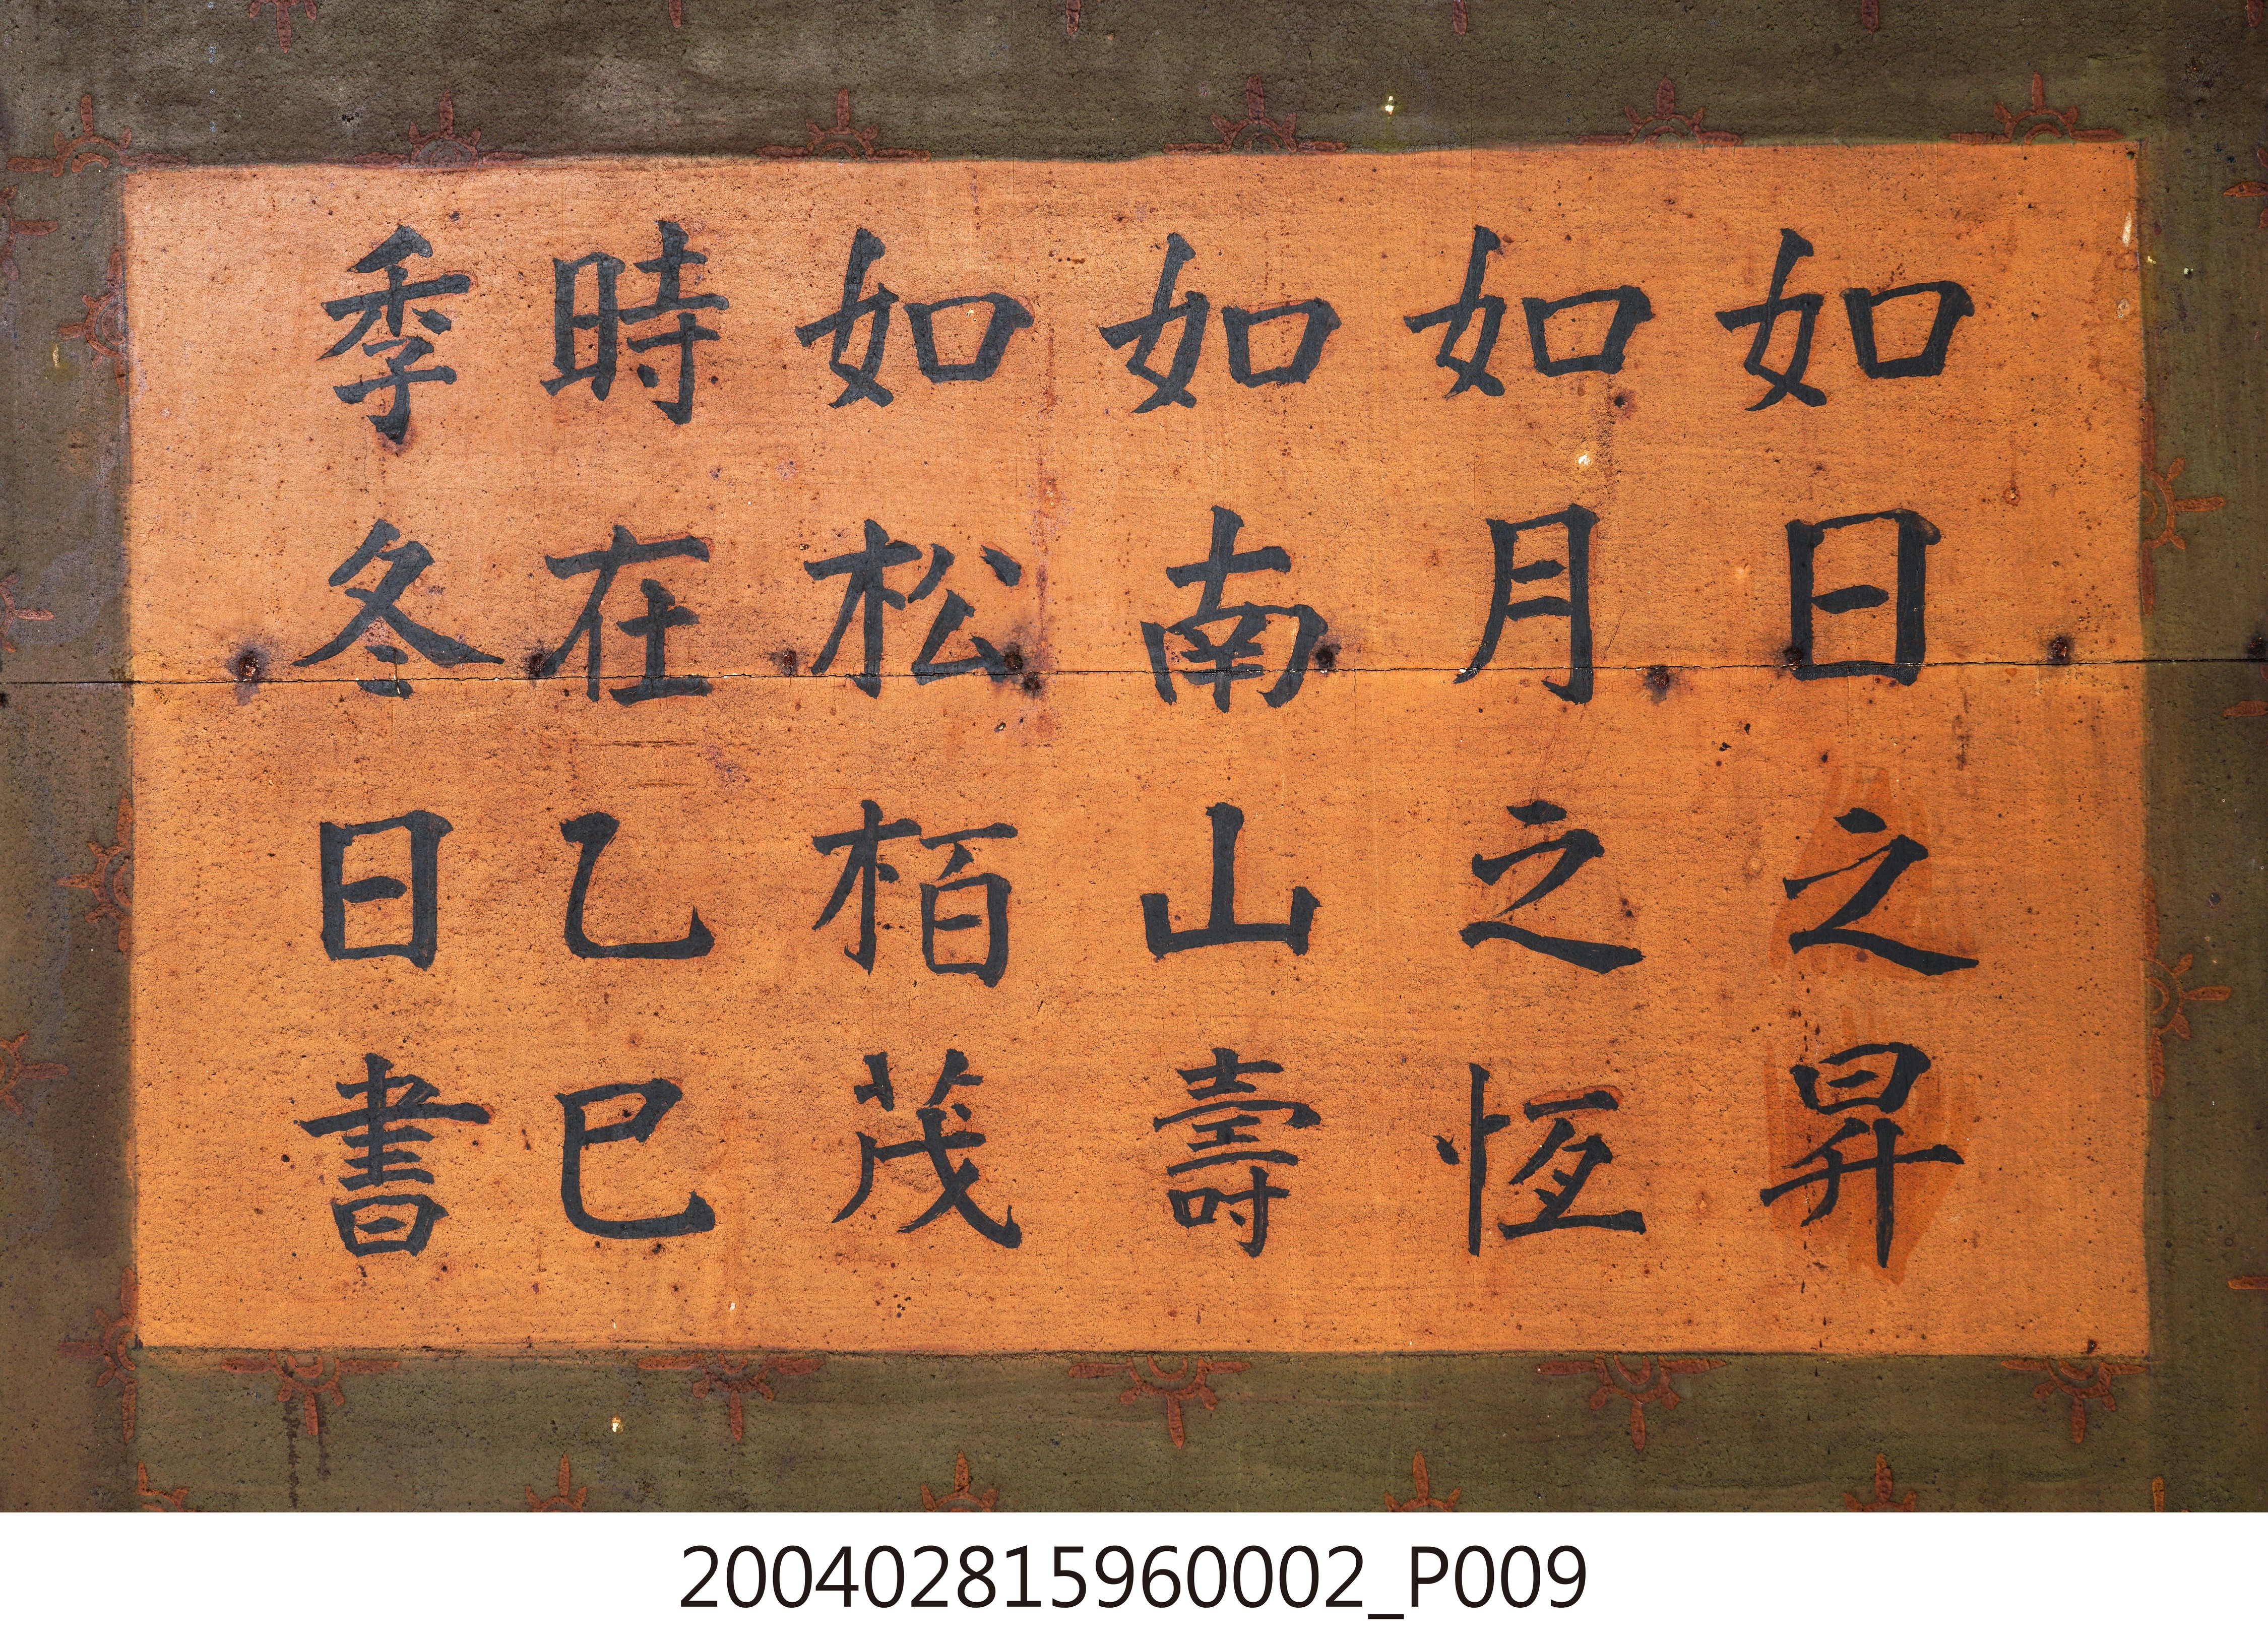 如日之昇
如月之恆
如南山壽
如松栢茂
時在乙巳
季冬日書
200402815960002_P009